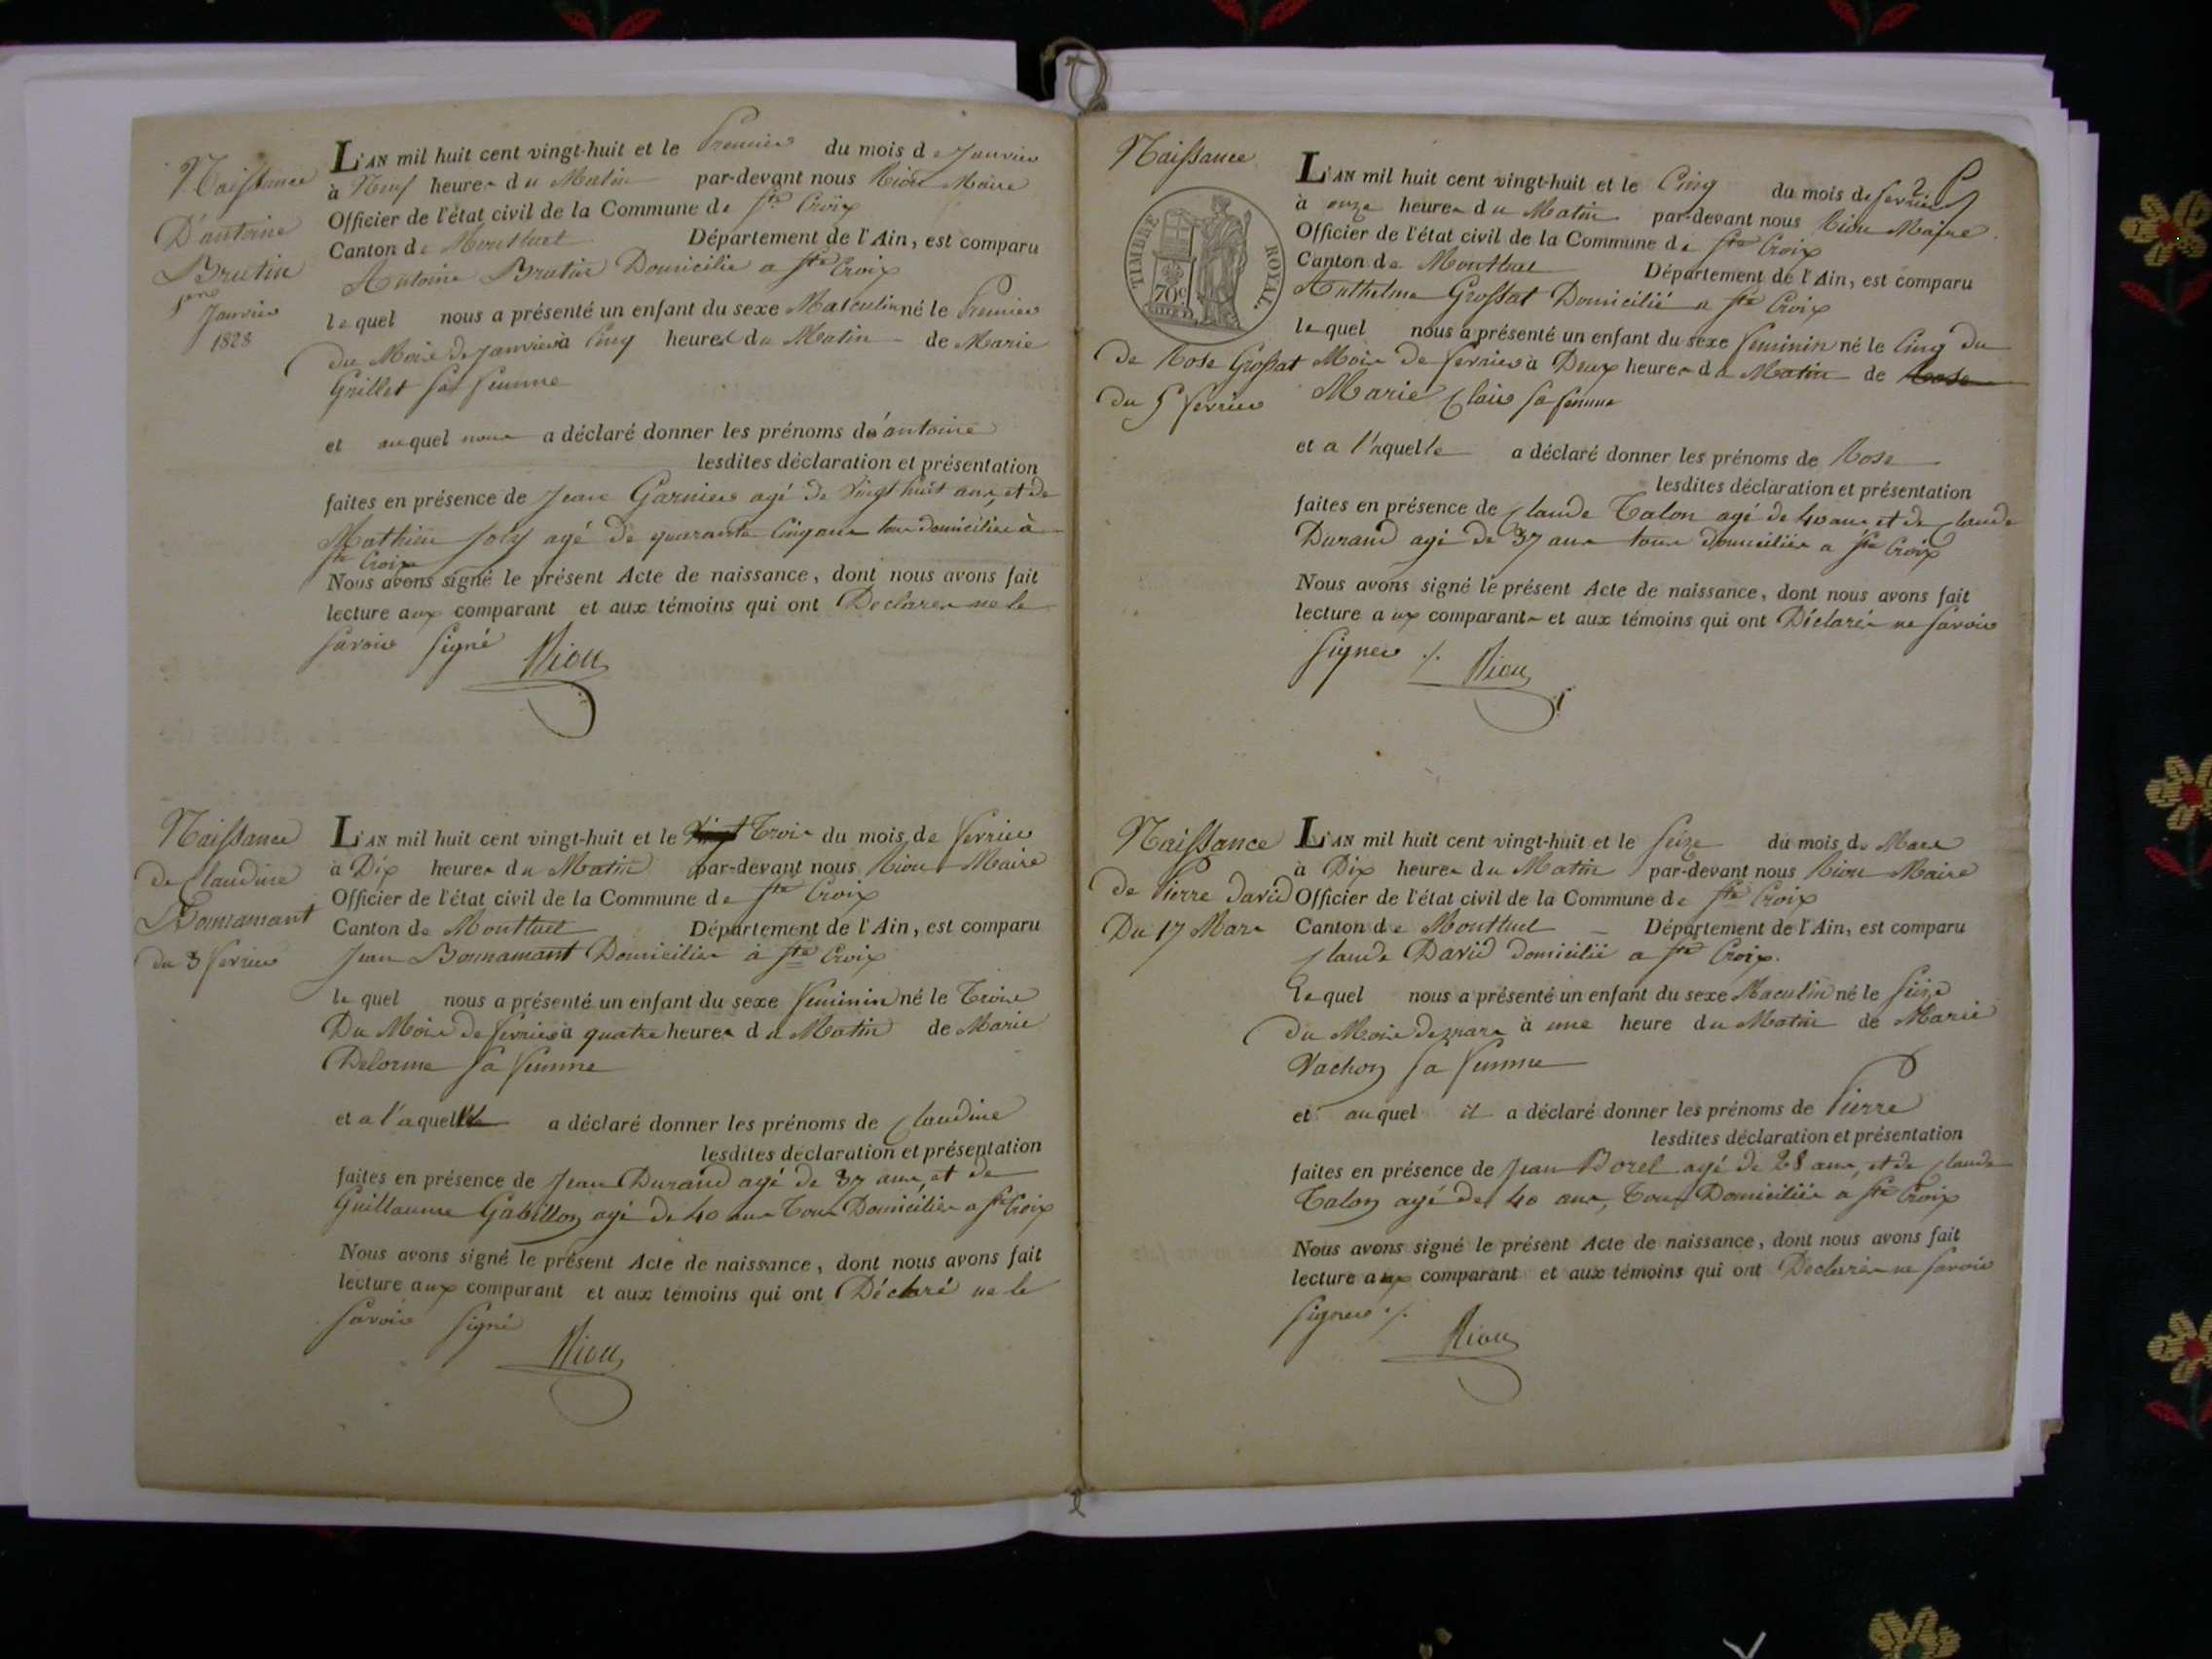 Naissance
D'antoine
Brutin
1er
Janvier
1828
L'AN mil huit cent vingt-huit et le Premier du mois de Janvier
à Neuf heures du Matin par-devant nous Riou Maire
Officier de l'état civil de la Commune de Ste Croix
Canton de Montluel Département de l'Ain, est comparu
Antoine Brutin Domicilié a Ste Croix
lequel nous a présenté un enfant du sexe Masculin né le Premier
du Mois de Janvier à Cinq heures du Matin de Marie
Grillet Sa femme
et auquel nous a déclaré donner les prénoms de antoine
lesdites déclaration et présentation
faites en présence de Jean Garnier agé de Vingt huit ans, et de
Mathieu Joly agé de quarante Cinq ans tous domiciliés à
Ste Croix
Nous avons signé le présent Acte de naissance, dont nous avons fait
lecture aux comparant et aux témoins qui ont Declarés ne le
Savoir Signé
Riou
Naissance
de Claudine
Bonnamant
du 3 fevrier
L'AN mil huit cent vingt-huit et le Trois du mois de fevrier
à Dix heures du Matin par-devant nous Riou Maire
Officier de l'état civil de la Commune de Ste Croix
Canton de Montluel Département de l'Ain, est comparu
Jean Bonnamant Domicilier à Ste Croix
lequel nous a présenté un enfant du sexe feminin né le Trois
Du Mois de fevrier à quatre heures du Matin de Marie
Delorme Sa femme
et a l'aquelle a déclaré donner les prénoms de Claudine
lesdites déclaration et présentation
faites en présence de Jean Durand agé de 37 ans, et de
Guillaume Gabillon agé de 40 ans Tous Domiciliés a Ste Croix
Nous avons signé le présent Acte de naissance, dont nous avons fait
lecture aux comparant et aux témoins qui ont Déclaré ne le
Savoir Signé
Riou
2
Naissance
TIMBRE ROYAL.
70c
de Rose Grossat
du 5 fevrier
L'AN mil huit cent vingt-huit et le Cinq du mois de fevrier
à onze heures du Matin par-devant nous Riou Maire
Officier de l'état civil de la Commune de Ste Croix
Canton de Montluel Département de l'Ain, est comparu
Anthelme Grossat Domicilié a Ste Croix
lequel nous a présenté un enfant du sexe feminin né le Cinq du
Mois de fevrier à Deux heures du Matin de Rose
Marie Clair Sa femme
et a l'aquelle a déclaré donner les prénoms de Rose
lesdites déclaration et présentation
faites en présence de Claude Talon agé de 40 ans et de Claude
Durand agé de 37 ans tous domiciliés a Ste Croix
Nous avons signé le présent Acte de naissance, dont nous avons fait
lecture aux comparants et aux témoins qui ont Déclarés ne Savoir
Signer ./.
Riou
Naissance
de Pierre David
Du 17 Mars
L'AN mil huit cent vingt-huit et le Seize du mois de Mars
à Dix heures du Matin par-devant nous Riou Maire
Officier de l'état civil de la Commune de Ste Croix
Canton de Montluel Département de l'Ain, est comparu
Claude David domicilié a Ste Croix.
Lequel nous a présenté un enfant du sexe Maculin né le Seize
du Mois de mars à une heure du Matin de Marie
Vachon Sa femme
et auquel il a déclaré donner les prénoms de Pierre
lesdites déclaration et présentation
faites en présence de Jean Borel agé de 28 ans, et de Claude
Talon agé de 40 ans, Tous Domiciliés a Ste Croix
Nous avons signé le présent Acte de naissance, dont nous avons fait
lecture aux comparant et aux témoins qui ont Declarés ne Savoir
Signer ./.
Riou